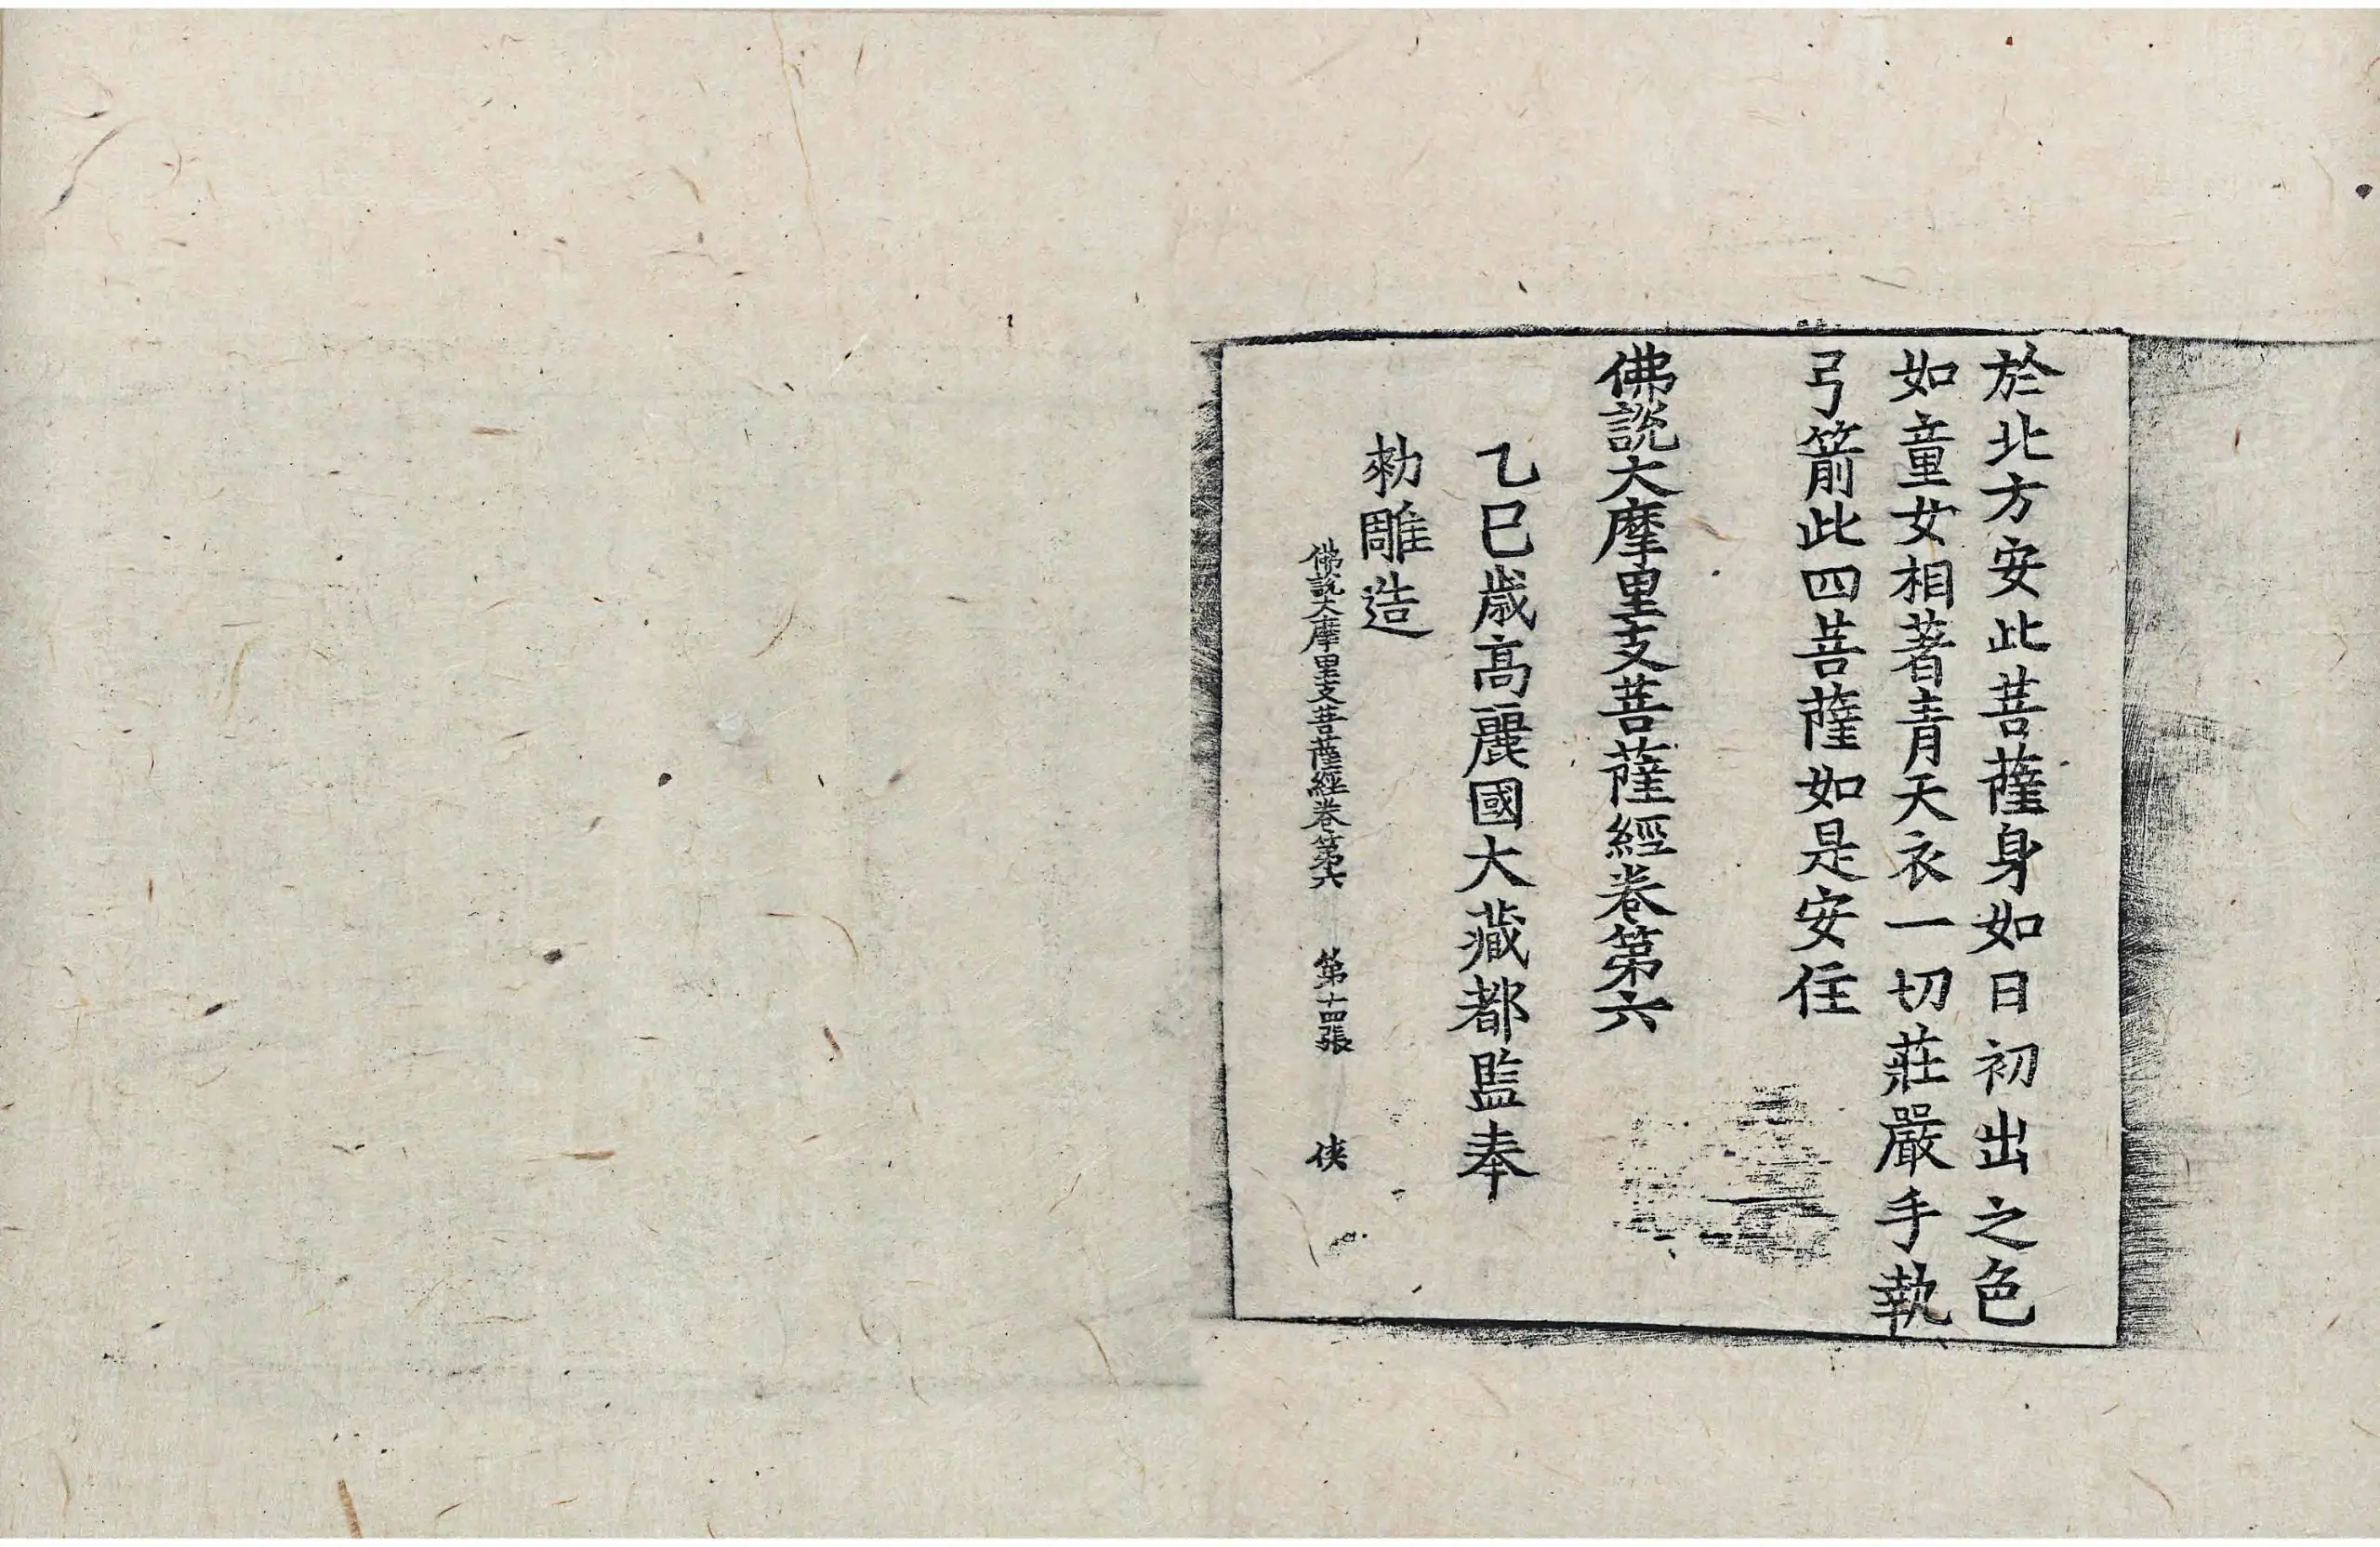 於北方安此菩薩身如日初出之色
如童女相著青天衣一切莊嚴手執
弓箭此四菩薩如是安住
佛說大摩里支菩薩經卷第六
乙巳歲高麗國大藏都監奉
勅雕造
佛說大摩里支菩薩經卷第六 第十四張 俠